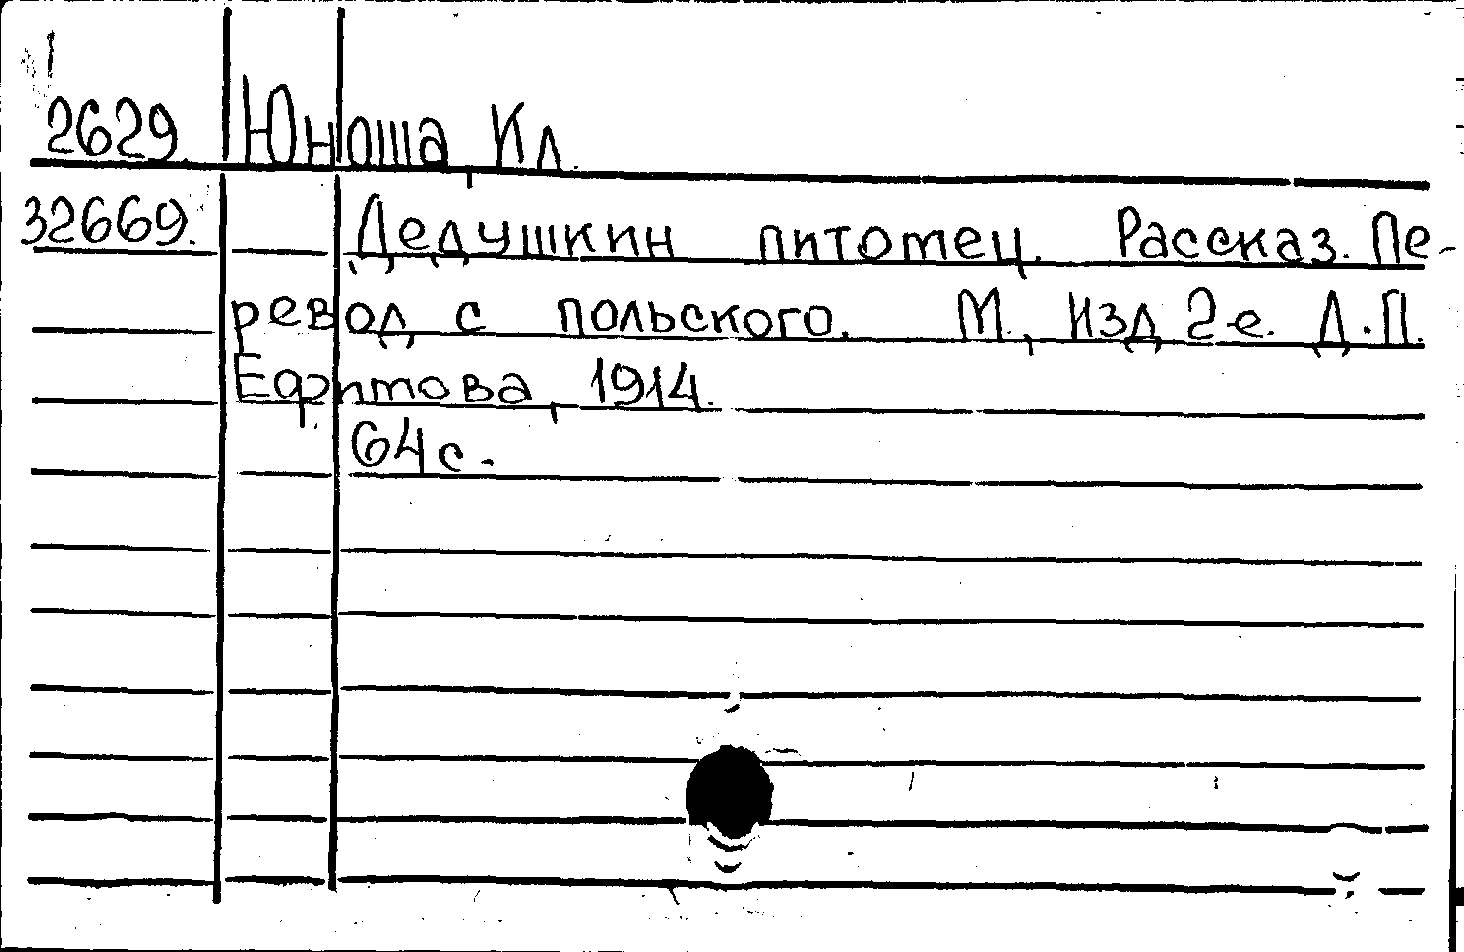 2629 Юноша, Кл.
32669. Дедушкин питомец. Рассказ. Пе-
ревод с польского. М., Изд 2-е. Д.П.
Ефимова, 1914.
64 с.